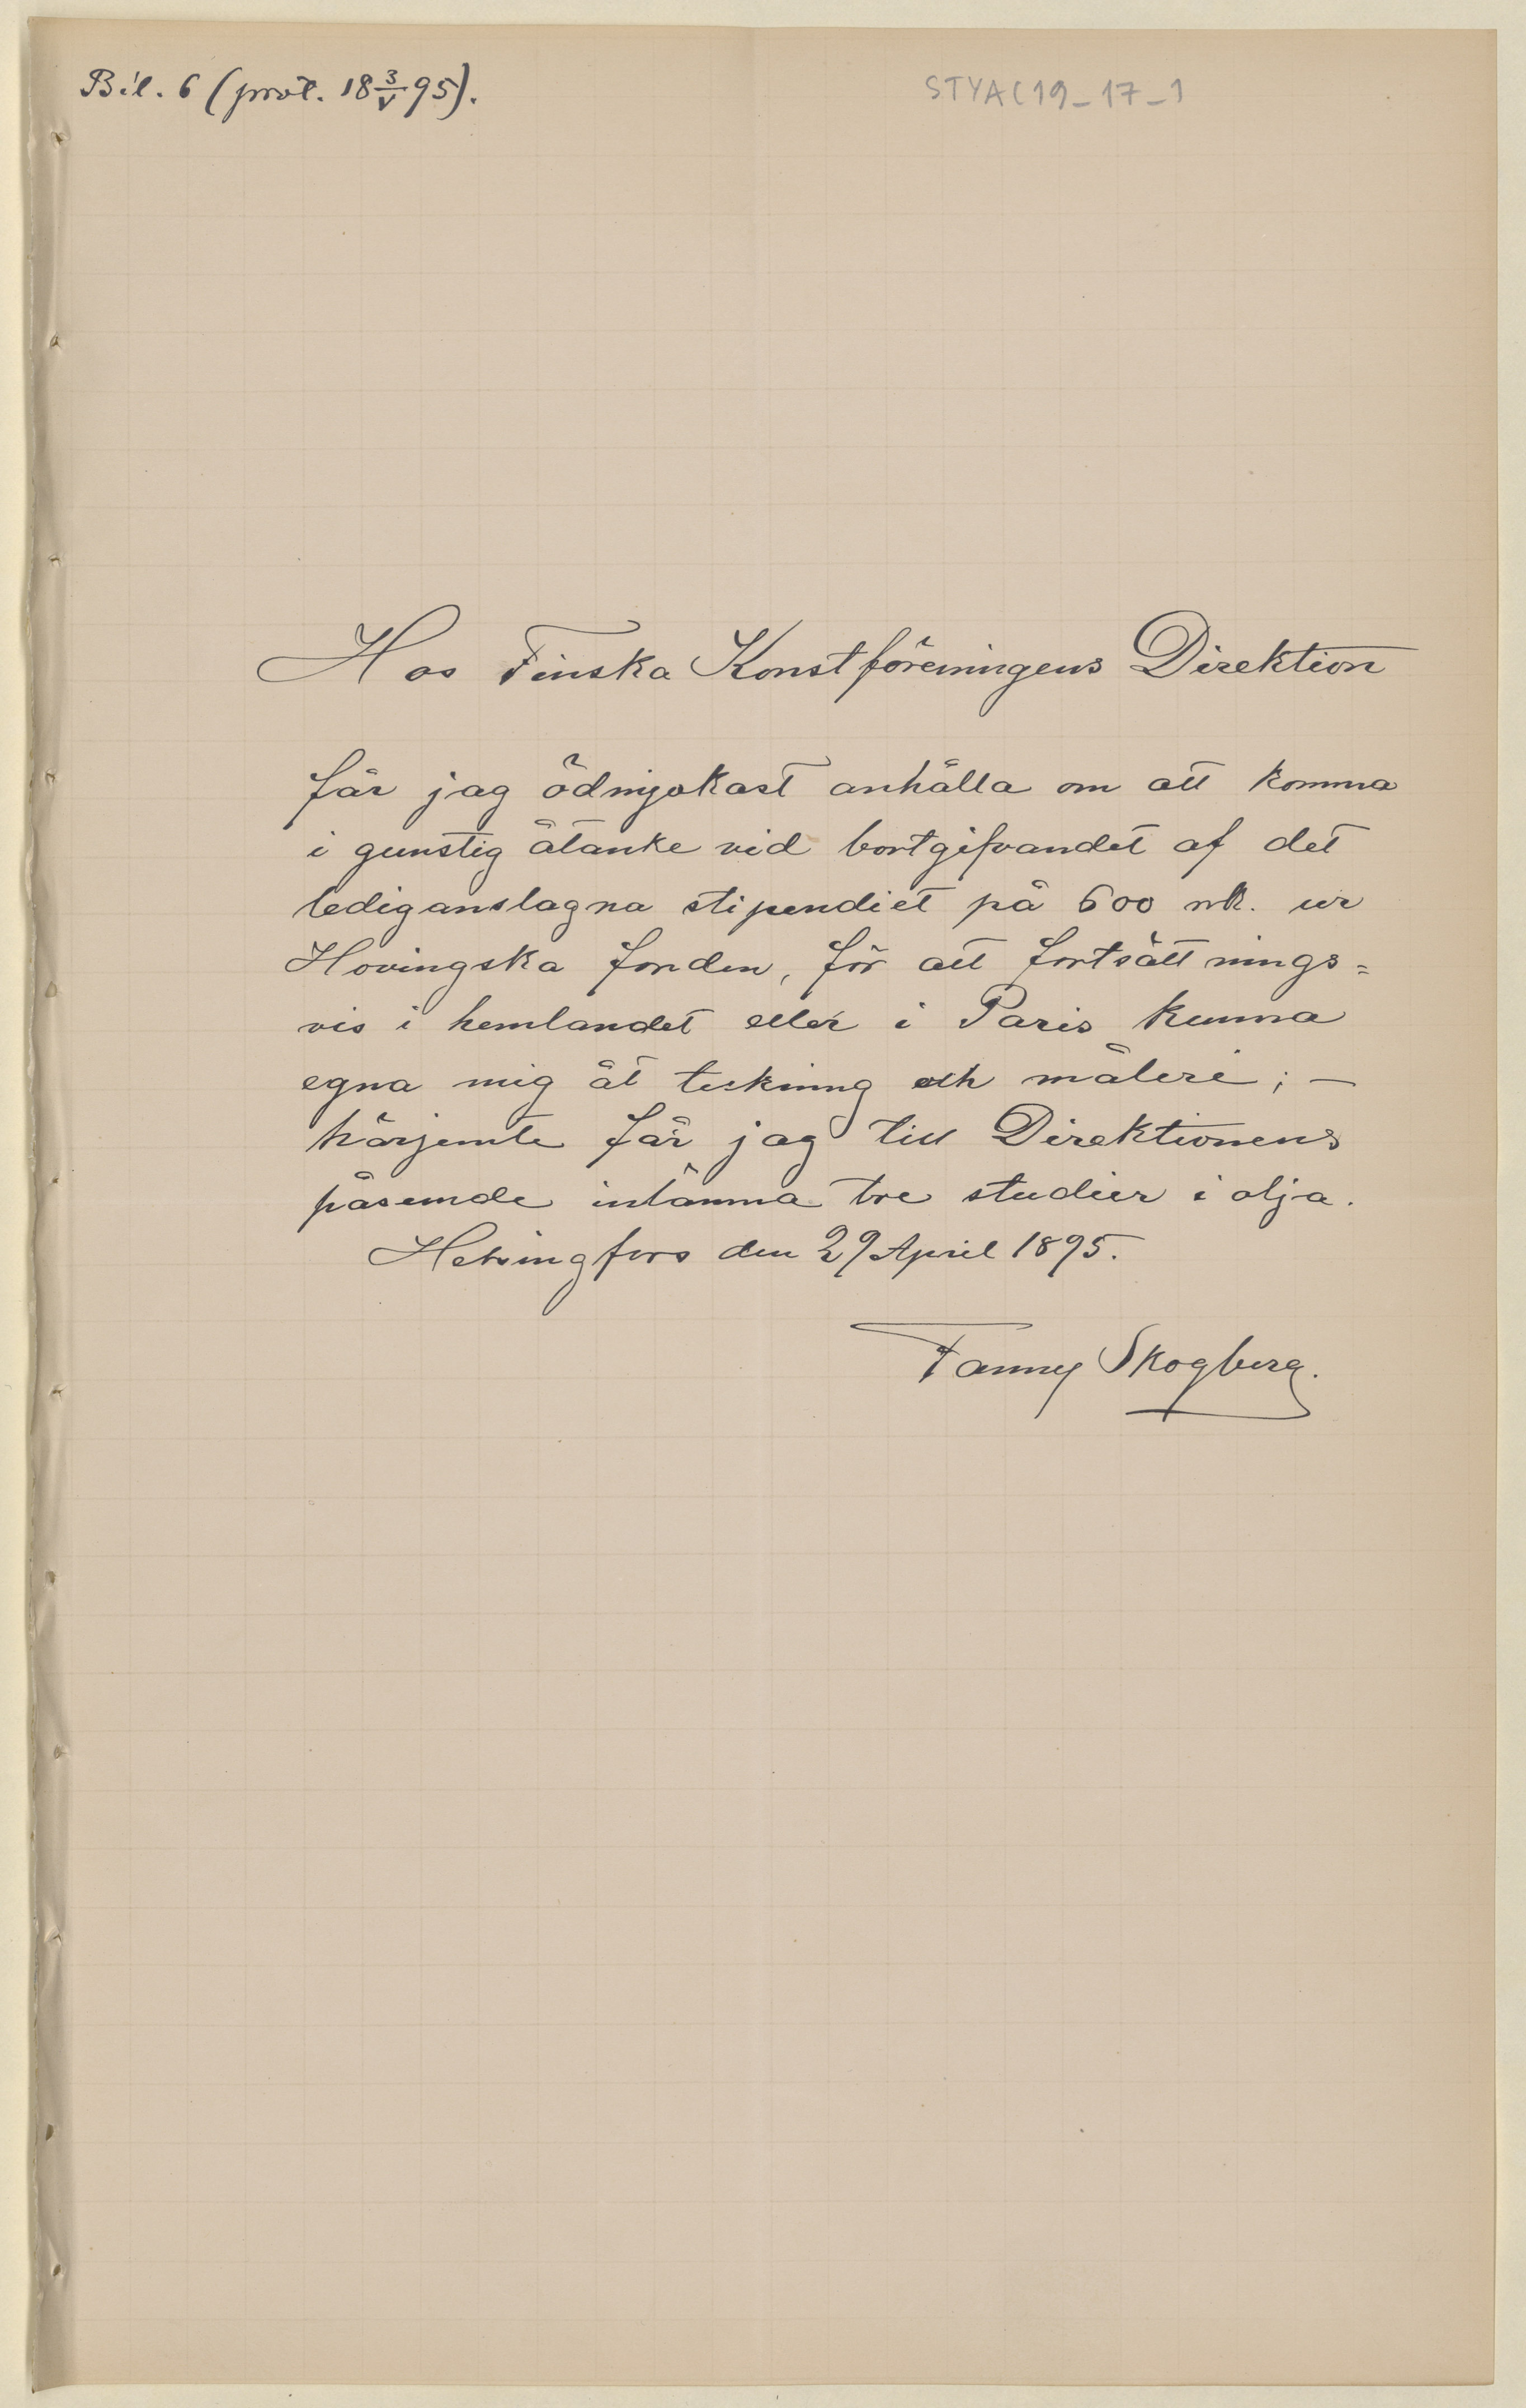 Bil. 6 (prot. 18 3/V 95).
STYA C19_17_1
Hos Finska Konstföreningens Direktion
får jag ödmjukast anhålla om att komma
i gunstig åtanke vid bortgifvandet af det
lediganslagna stipendiet på 600 mk. ur
Hovingska fonden, för att fortsättnings=
vis i hemlandet eller i Paris kunna
egna mig åt teckning och måleri; —
härjemte får jag till Direktionens
påseende inlämna tre studier i olja.
Helsingfors den 29 April 1895.
Fanny Skogberg.